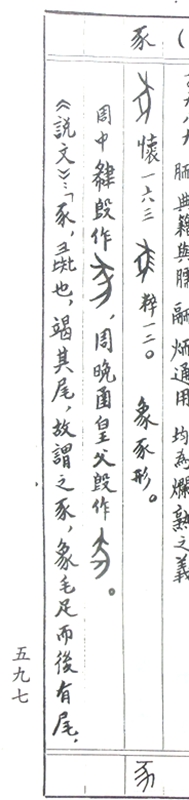 典籍與臑、胹、炳通用均為爛熟之義
豕
懷一六三 粹一二〇 象豕形。
周中 肄毁作 ，周晚圅皇父毁作 。
《說文》：「豕，彘也，竭其尾，故謂之豕，象毛足而後有尾，
五九七